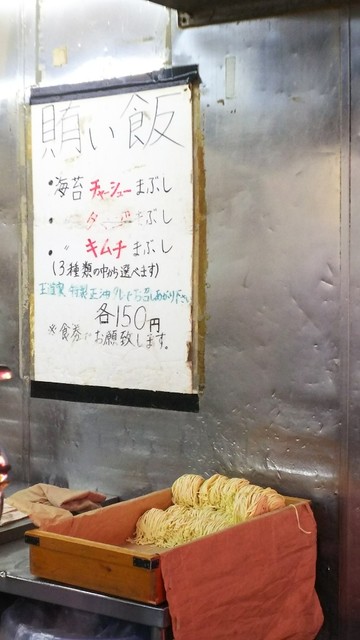 賄い飯
・海苔チャーシューまぶし
・〃 まぶし
・〃 キムチまぶし
(3種類の中から選べます)
お召しあがり下さい
各150円
※食券でお願致します。